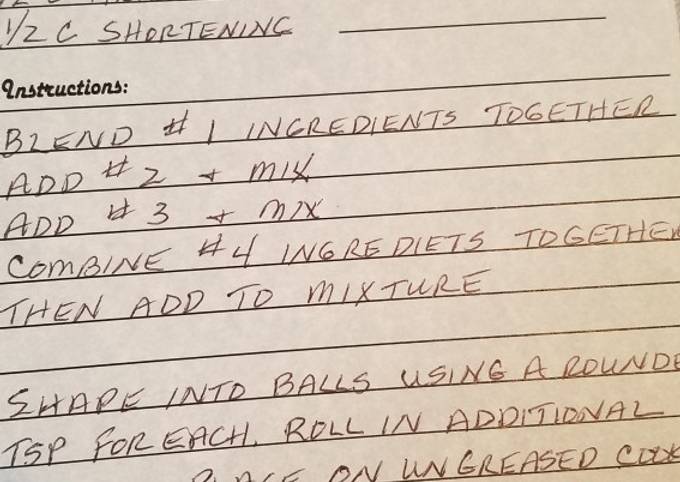 1/2 C SHORTENING
Instructions:
BLEND #1 INGREDIENTS TOGETHER
ADD #2 + MIX
ADD #3 + MIX
COMBINE #4 INGREDIETS TOGETHER
THEN ADD TO MIXTURE
SHAPE INTO BALLS USING A ROUNDE
TSP FOR EACH. ROLL IN ADDITIONAL
ON UNGREASED COOK